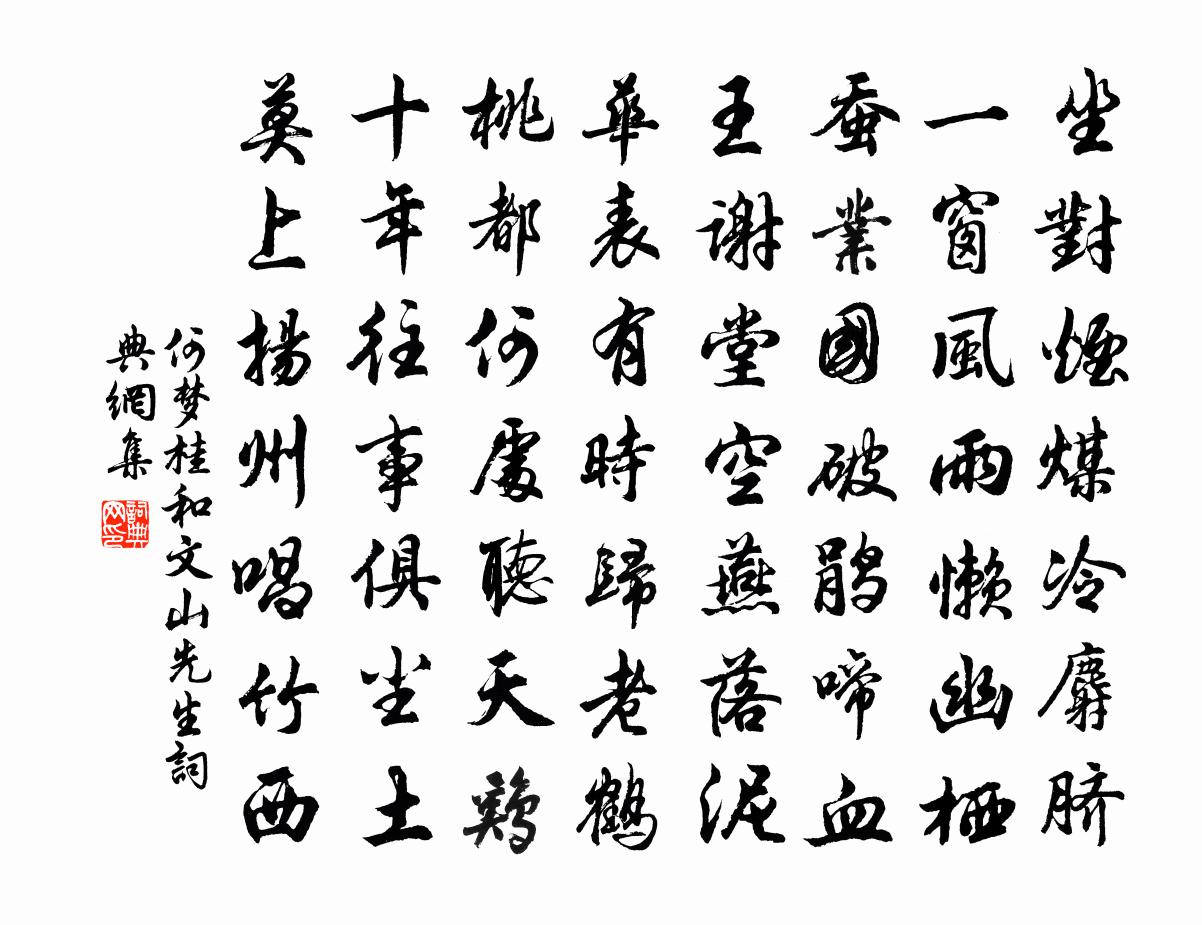 坐對煙煤冷麝脐
一窗風雨懒幽栖
蚕業國破鹃啼血
王谢堂空燕落泥
華表有時歸老鶴
桃都何處聽天鷄
十年往事俱尘土
莫上揚州唱竹西
何梦桂和文山先生詞
典網集
詞典
网印